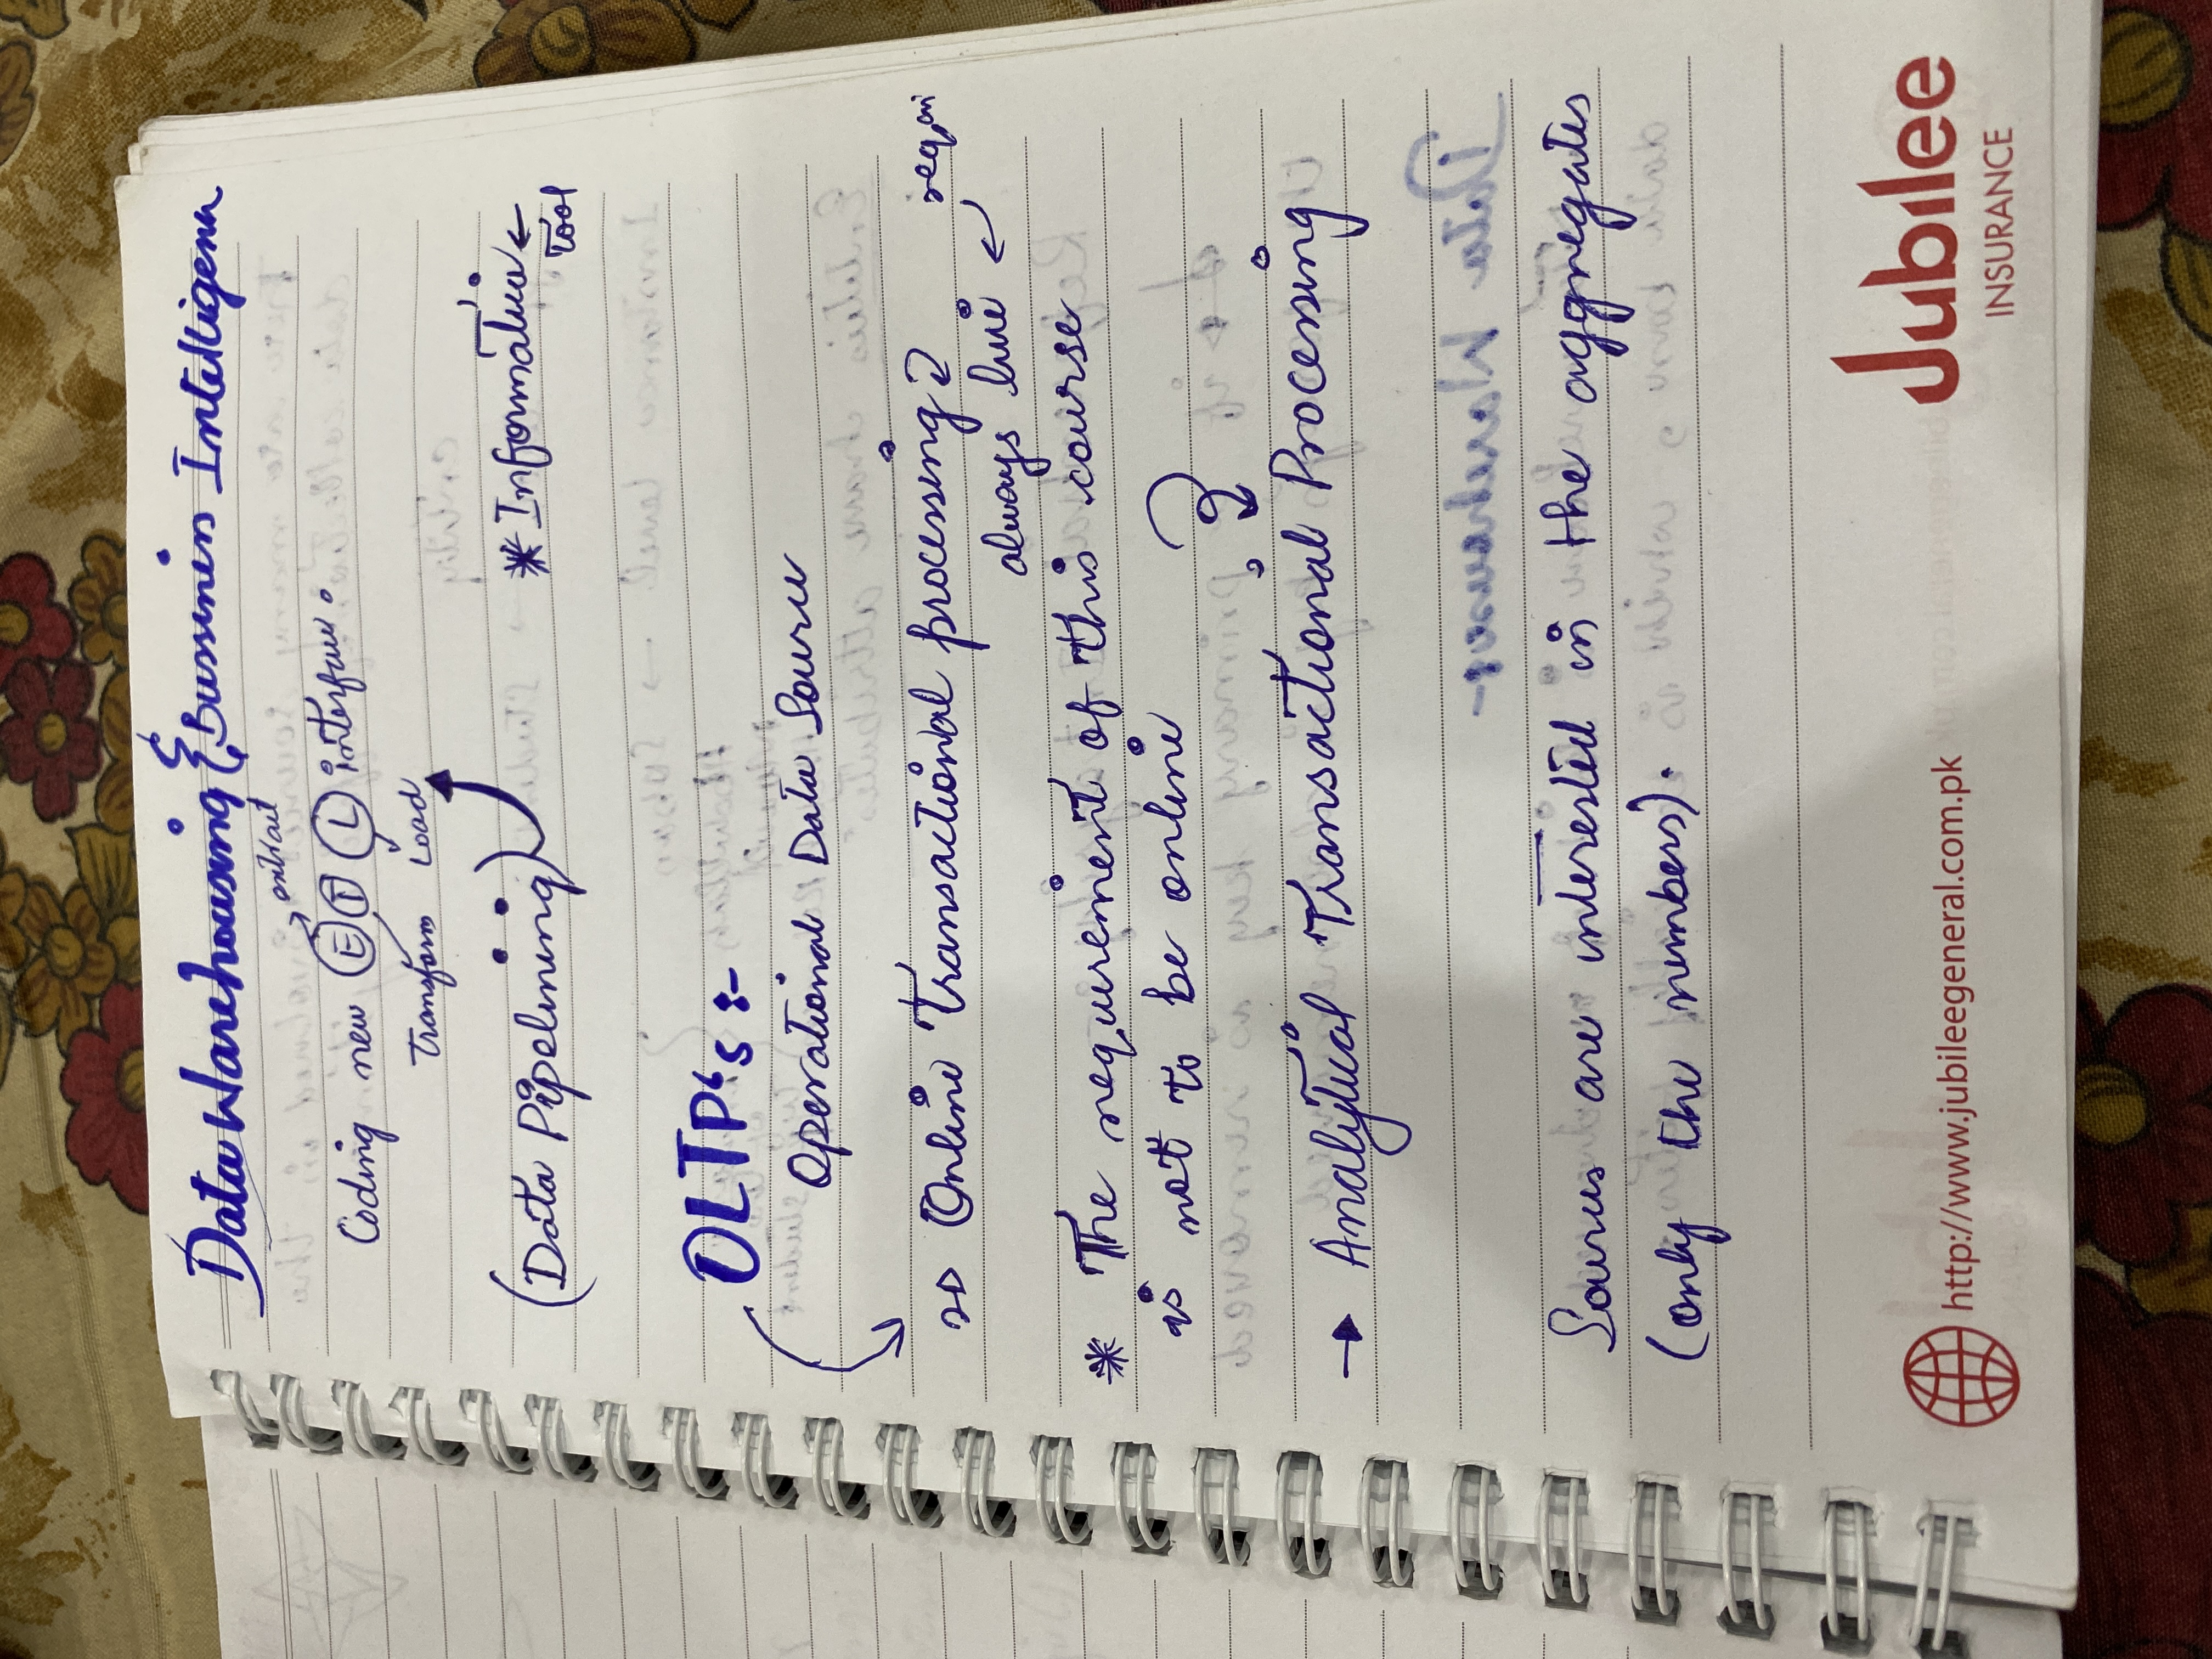 Data Warehousing & Bussiness Intelligence
extract
Coding new E T L interface.
Transform Load
(Data Pipelining)
* Informatica ←
Tool
OLTP's :-
Operational Data Source
Online Transactional processing
always live ←
* The requirement of this course
is not to be online
→ Analytical Transactional Processing
Sources are interested in the aggregates
(only the numbers).
http://www.jubileegeneral.com.pk
Jubilee
INSURANCE